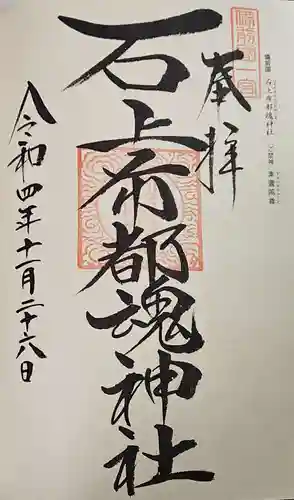 備前国
石上布都魂神社
御祭神 素盞嗚尊
備前國一宮
奉拝
石上布都魂神社
令和四年十一月二十六日